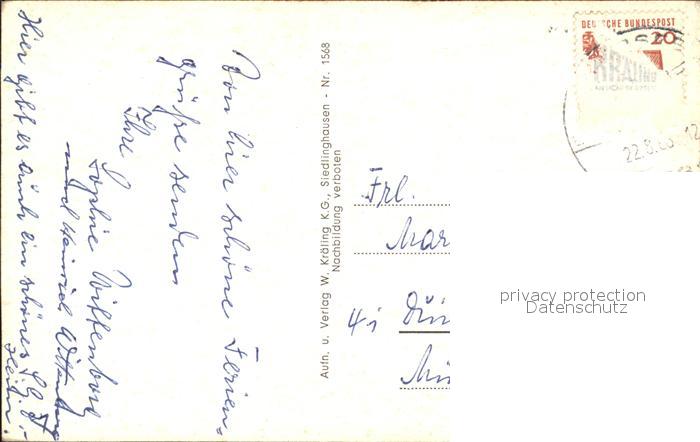 Von hier schöne Ferien-
grüße senden
Ihre
Sophie Wittenborg
und Heinrich Wittenborg
Hier gibt es auch ein schönes
Aufn. u. Verlag W. Kräling K.G., Siedlinghausen - Nr. 1568
Nachbildung verboten
DEUTSCHE BUNDESPOST
20
KRÄLING
22.8.60
12
Frl.
Mar
41 Dün
privacy protection
Datenschutz